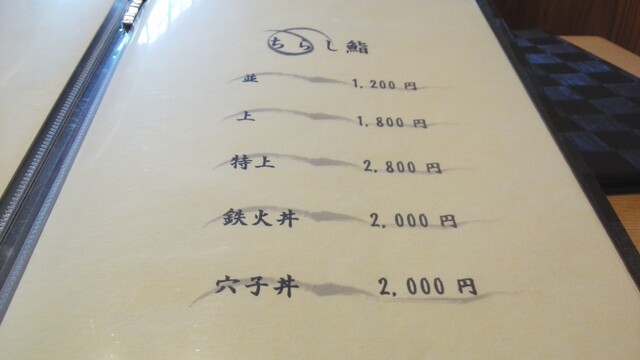 ちらし鮨
並 1,200 円
上 1,800 円
特上 2,800 円
鉄火丼 2,000 円
穴子丼 2,000 円